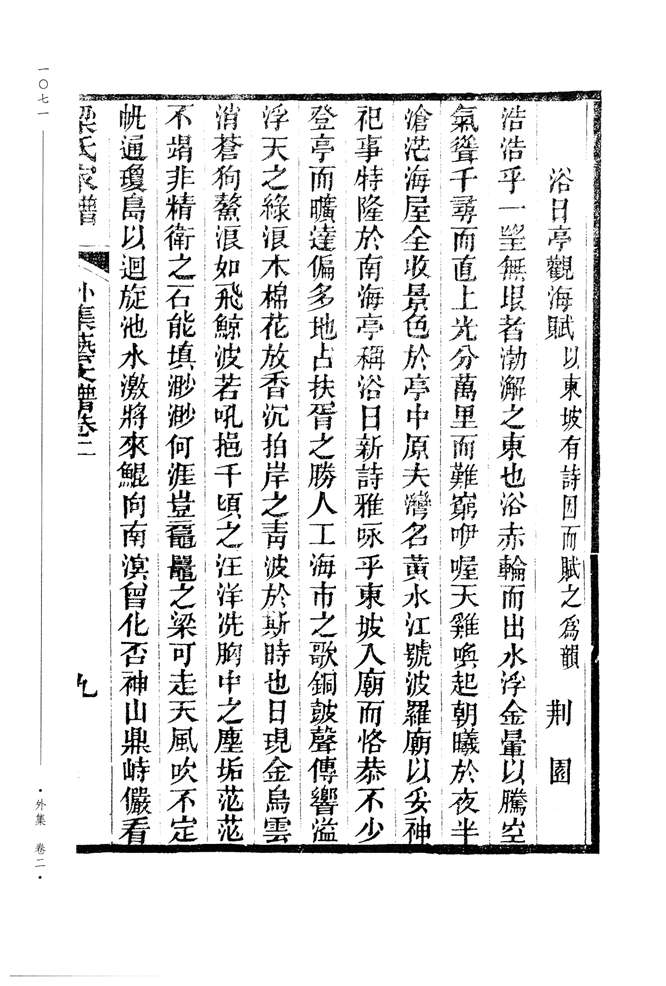 浴日亭觀海賦 以東坡有詩因而賦之爲韻 荆園
浩浩乎一望無垠者渤澥之東也浴赤輪而出水浮金暈以騰空
氣聳千尋而直上光分萬里而難窮咿喔天雞喚起朝曦於夜半
滄茫海屋全收景色於亭中原夫灣名黃水江號波羅廟以妥神
祀事特隆於南海亭稱浴日新詩雅咏乎東坡入廟而恪恭不少
登亭而曠達偏多地占扶胥之勝人工海市之歌銅皷聲傳響溢
浮天之綠浪木棉花放香沉拍岸之靑波於斯時也日現金烏雲
消蒼狗鰲浪如飛鯨波若吼挹千頃之汪洋洗胸中之塵垢范范
不竭非精衛之石能填渺渺何涯豈黿鼉之梁可走天風吹不定
帆通瓊島以迴旋池水激將來鯤向南溟曾化否神山鼎峙儼看
梁氏家譜 外集藝文譜卷二 九
一〇七一
·外集 卷二·